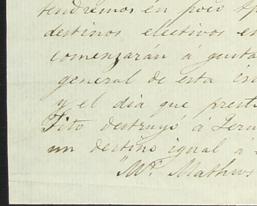 tendremos en poco
destinos electivos en
comenzarán á gusta
general de esta
y el dia que prest
Tito destruyó á Jeru
un destino igual a
"Mr. Mathew